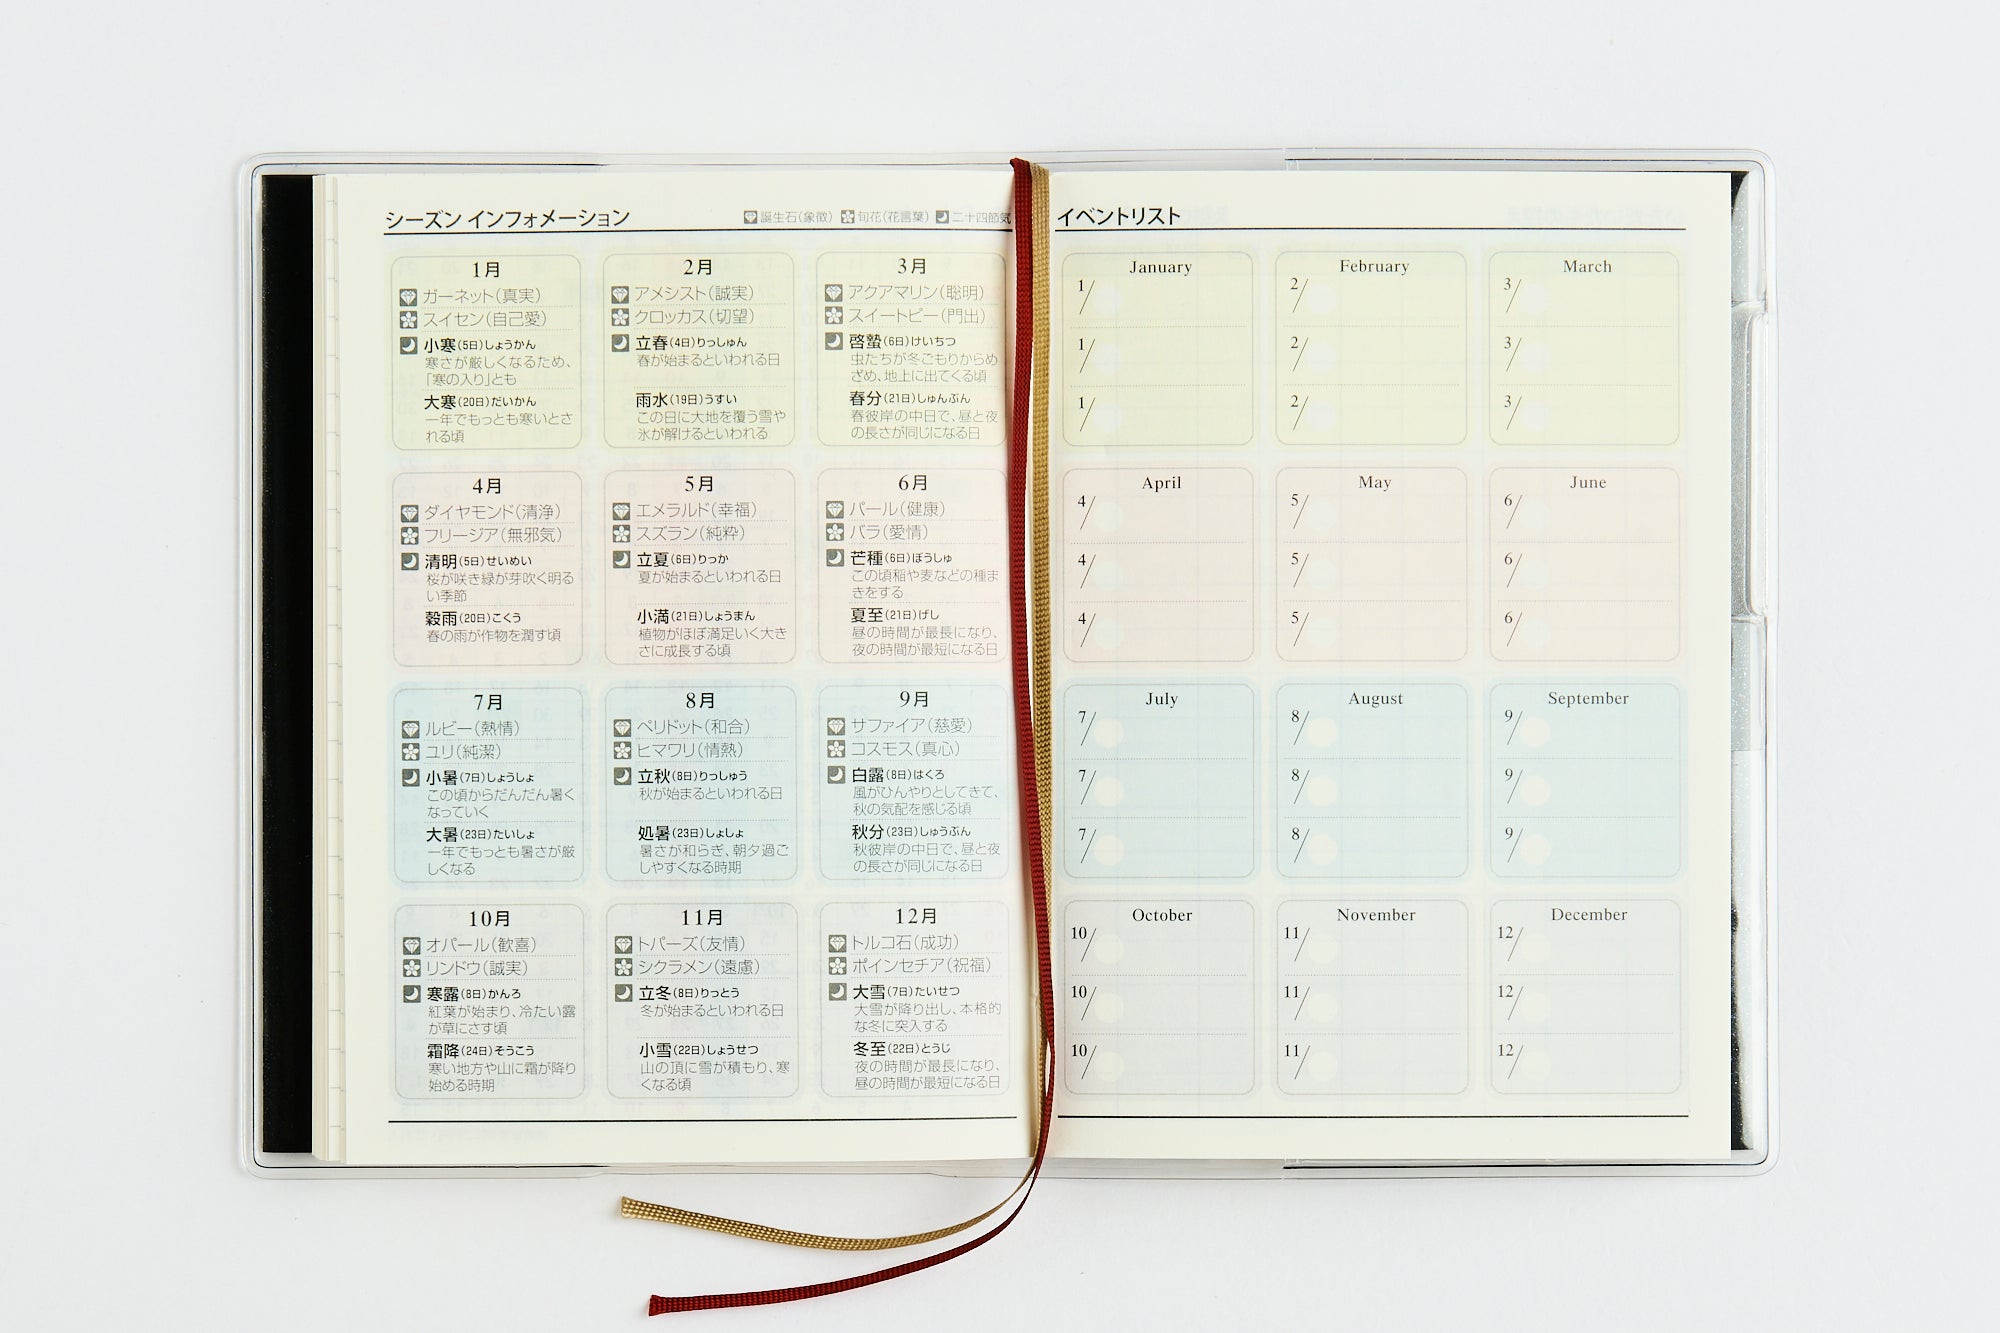 シーズン インフォメーション
誕生石(象徴) 旬花(花言葉) 二十四節気
1月
ガーネット(真実)
スイセン(自己愛)
小寒(5日)しょうかん
寒さが厳しくなるため、
「寒の入り」とも
大寒(20日)だいかん
一年でもっとも寒いとさ
れる頃
2月
アメシスト(誠実)
クロッカス(切望)
立春(4日)りっしゅん
春が始まるといわれる日
雨水(19日)うすい
この日に大地を覆う雪や
氷が解けるといわれる
3月
アクアマリン(聡明)
スイートピー(門出)
啓蟄(6日)けいちつ
虫たちが冬ごもりからめ
ざめ、地上に出てくる頃
春分(21日)しゅんぶん
春彼岸の中日で、昼と夜
の長さが同じになる日
4月
ダイヤモンド(清浄)
フリージア(無邪気)
清明(5日)せいめい
桜が咲き緑が芽吹く明る
い季節
穀雨(20日)こくう
春の雨が作物を潤す頃
5月
エメラルド(幸福)
スズラン(純粋)
立夏(6日)りっか
夏が始まるといわれる日
小満(21日)しょうまん
植物がほぼ満足いく大き
さに成長する頃
6月
パール(健康)
バラ(愛情)
芒種(6日)ぼうしゅ
この頃稲や麦などの種ま
きをする
夏至(21日)げし
昼の時間が最長になり、
夜の時間が最短になる日
7月
ルビー(熱情)
ユリ(純潔)
小暑(7日)しょうしょ
この頃からだんだん暑く
なっていく
大暑(23日)たいしょ
一年でもっとも暑さが厳
しくなる
8月
ペリドット(和合)
ヒマワリ(情熱)
立秋(8日)りっしゅう
秋が始まるといわれる日
処暑(23日)しょしょ
暑さが和らぎ、朝夕過ご
しやすくなる時期
9月
サファイア(慈愛)
コスモス(真心)
白露(8日)はくろ
風がひんやりとしてきて、
秋の気配を感じる頃
秋分(23日)しゅうぶん
秋彼岸の中日で、昼と夜
の長さが同じになる日
10月
オパール(歓喜)
リンドウ(誠実)
寒露(8日)かんろ
紅葉が始まり、冷たい露
が草にさす頃
霜降(24日)そうこう
寒い地方や山に霜が降り
始める時期
11月
トパーズ(友情)
シクラメン(遠慮)
立冬(8日)りっとう
冬が始まるといわれる日
小雪(22日)しょうせつ
山の頂に雪が積もり、寒
くなる頃
12月
トルコ石(成功)
ポインセチア(祝福)
大雪(7日)たいせつ
大雪が降り出し、本格的
な冬に突入する
冬至(22日)とうじ
夜の時間が最長になり、
昼の時間が最短になる日
イベントリスト
January
1/
1/
1/
February
2/
2/
2/
March
3/
3/
3/
April
4/
4/
4/
May
5/
5/
5/
June
6/
6/
6/
July
7/
7/
7/
August
8/
8/
8/
September
9/
9/
9/
October
10/
10/
10/
November
11/
11/
11/
December
12/
12/
12/